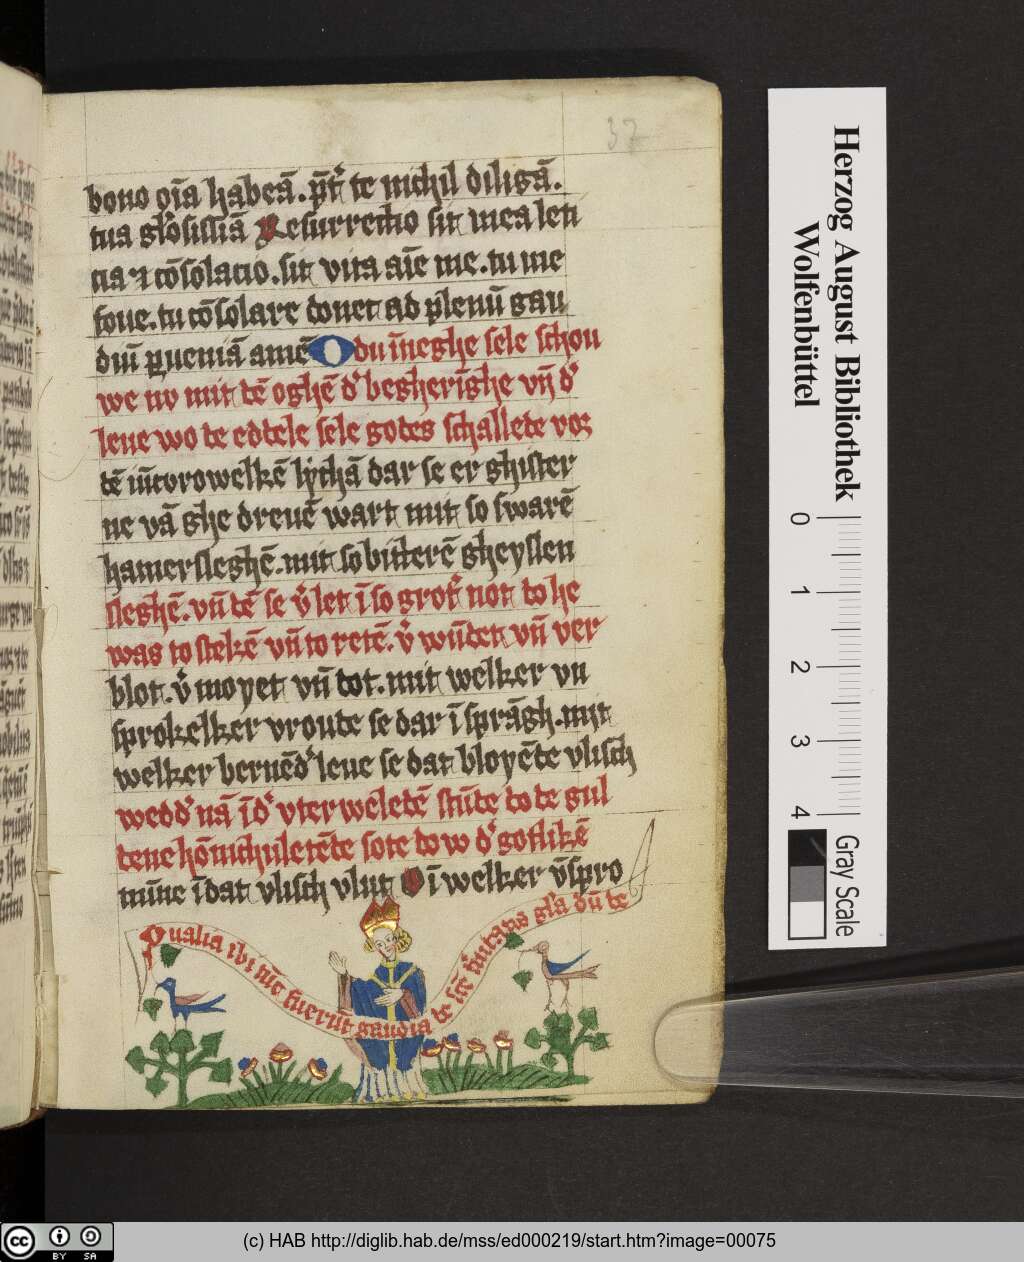 37
bono oīa habeā. p̄t̉ te nichil diligā.
tua gl̉osissiā Resurrectio sit mea leti
cia ⁊ cōsolacio. sit vita aīe me. tu me
foue. tu cōsolare donec ad plenū gau
diū ꝑueniā amē O du īneghe sele schou
we nv mit tē oghē d̉ begherīghe vn̄ d̉
leue wo te edtele sele gotes schallete vor
tē iūcvrowelkē lychā dar se er ghister
ne vā ghe dreuē wart mit so swarē
hamersleghē. mit so bitterē gheyslen
sleghē. vn̄ tē se v̉let ī so grot̉ not to he
was to stekē vn̄ to retē. v̉ wūdet vn̄ ver
blot. v̉ moyet vn̄ dot. mit welker vn
sprokelker vroute se dar ī sprāgh. mit
welker bernēd̉ leue se dat bloyēte vlisch
wedd̉ nā īd̉ vterweletē stūte to te gul
tene hōnichuletēte sote to w d̉ gotlikē
mīne īdat vlisch vlut O ī welker v̄spro
Qualia ibi tūc fuerūt gaudia te scē t̉nitatis gl̉a dū te
Herzog August Bibliothek
Wolfenbüttel
0 1 2 3 4
Gray Scale
cc BY SA
(c) HAB http://diglib.hab.de/mss/ed000219/start.htm?image=00075